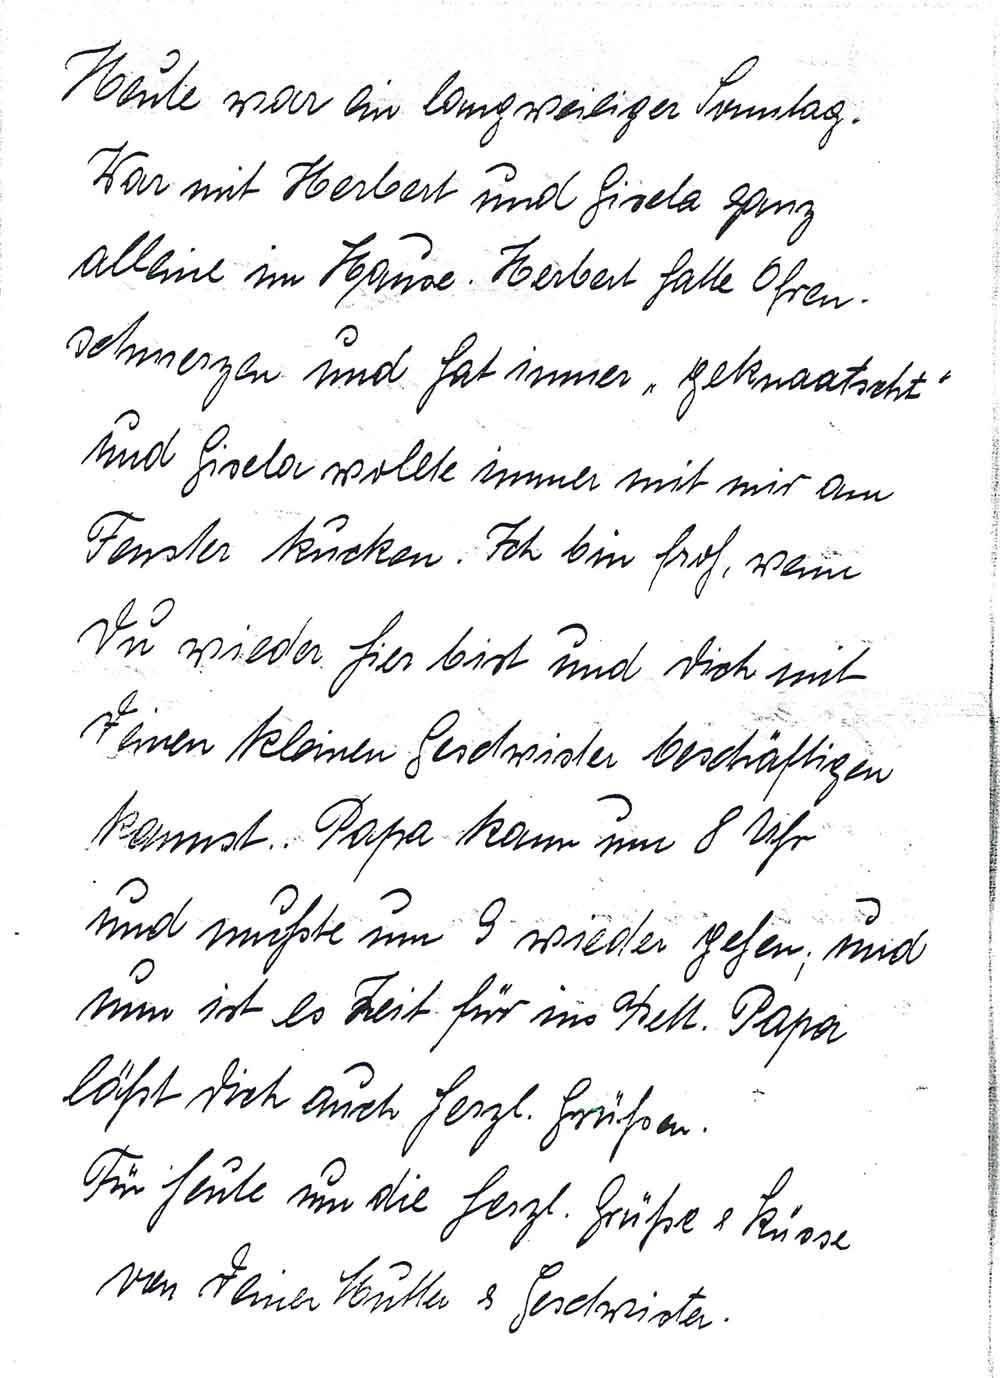 Heute war ein langweiliger Sonntag.
War mit Herbert und Gisela ganz
alleine im Hause. Herbert hatte Ohren-
schmerzen und hat immer „geknaatscht“
und Gisela wollte immer mit mir am
Fenster kucken. Ich bin froh, wenn
Du wieder hier bist und Dich mit
Deinen kleinen Geschwister beschäftigen
kannst.. Papa kam um 8 Uhr
und mußte um 9 wieder gehen; und
nun ist es Zeit für ins Bett. Papa
läßt Dich auch herzl. Grüßen.
Für heute nun die herzl. Grüße & Küsse
von Deiner Mutter & Geschwister.